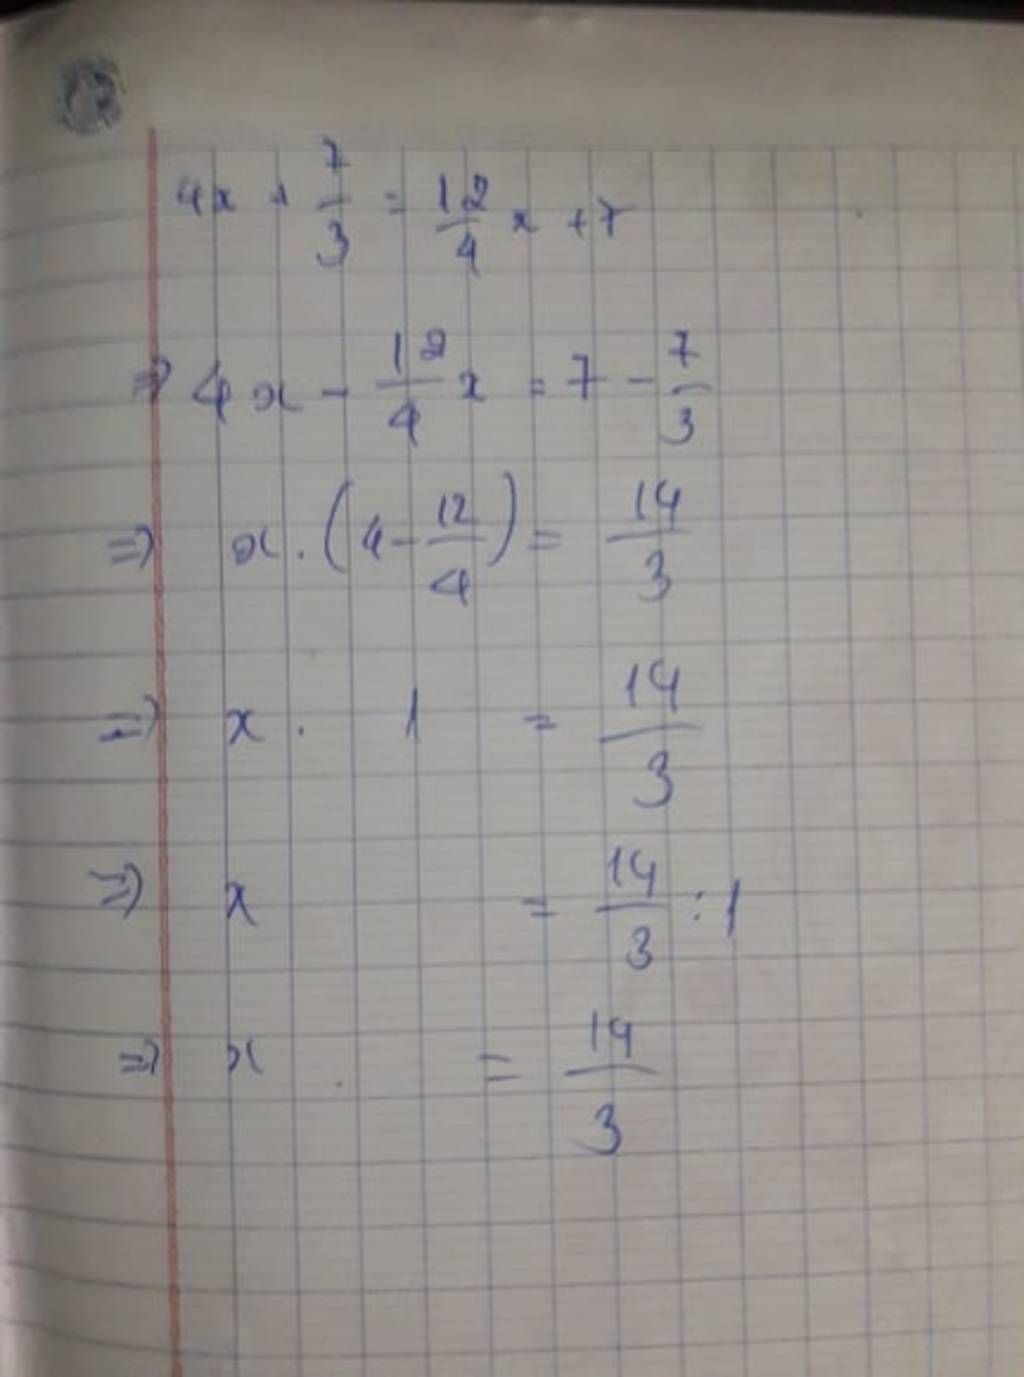 4x + 7/3 = 12/4 x + 7
=> 4x - 12/4 x = 7 - 7/3
=> x . (4 - 12/4) = 14/3
=> x . 1 = 14/3
=> x = 14/3 : 1
=> x = 14/3